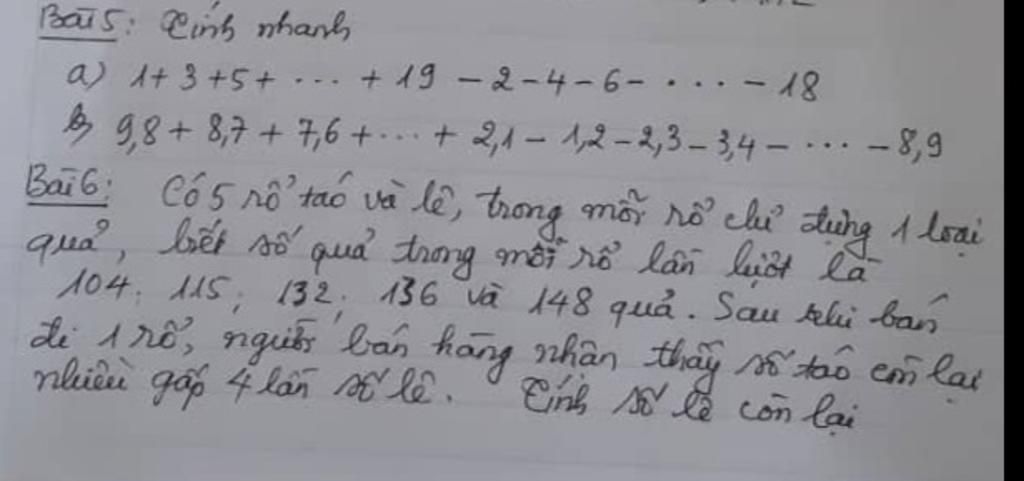 Bài 5: Tính nhanh
a) 1 + 3 + 5 + ... + 19 - 2 - 4 - 6 - ... - 18
b) 9,8 + 8,7 + 7,6 + ... + 2,1 - 1,2 - 2,3 - 3,4 - ... - 8,9
Bài 6: Có 5 rổ táo và lê, trong mỗi rổ chỉ đựng 1 loại
quả, biết số quả trong mỗi rổ lần lượt là
104; 115; 132; 136 và 148 quả. Sau khi bán
đi 1 rổ, người bán hàng nhận thấy số táo còn lại
nhiều gấp 4 lần số lê. Tính số lê còn lại